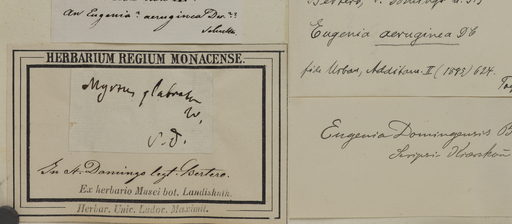 An Eugenia? aeruginea Dec.??
HERBARIUM REGIUM MONACENSE.
Myrtus glabrata
W.
S. D.
In St. Domingo legt. Bertero.
Ex herbario Musei bot. Landishuth.
Herbar. Univ. Ludov. Maximil.
Eugenia aeruginea DC
fide Urban, Additam. II (1899) 624.
Eugenia Domingensis B
Scripsit